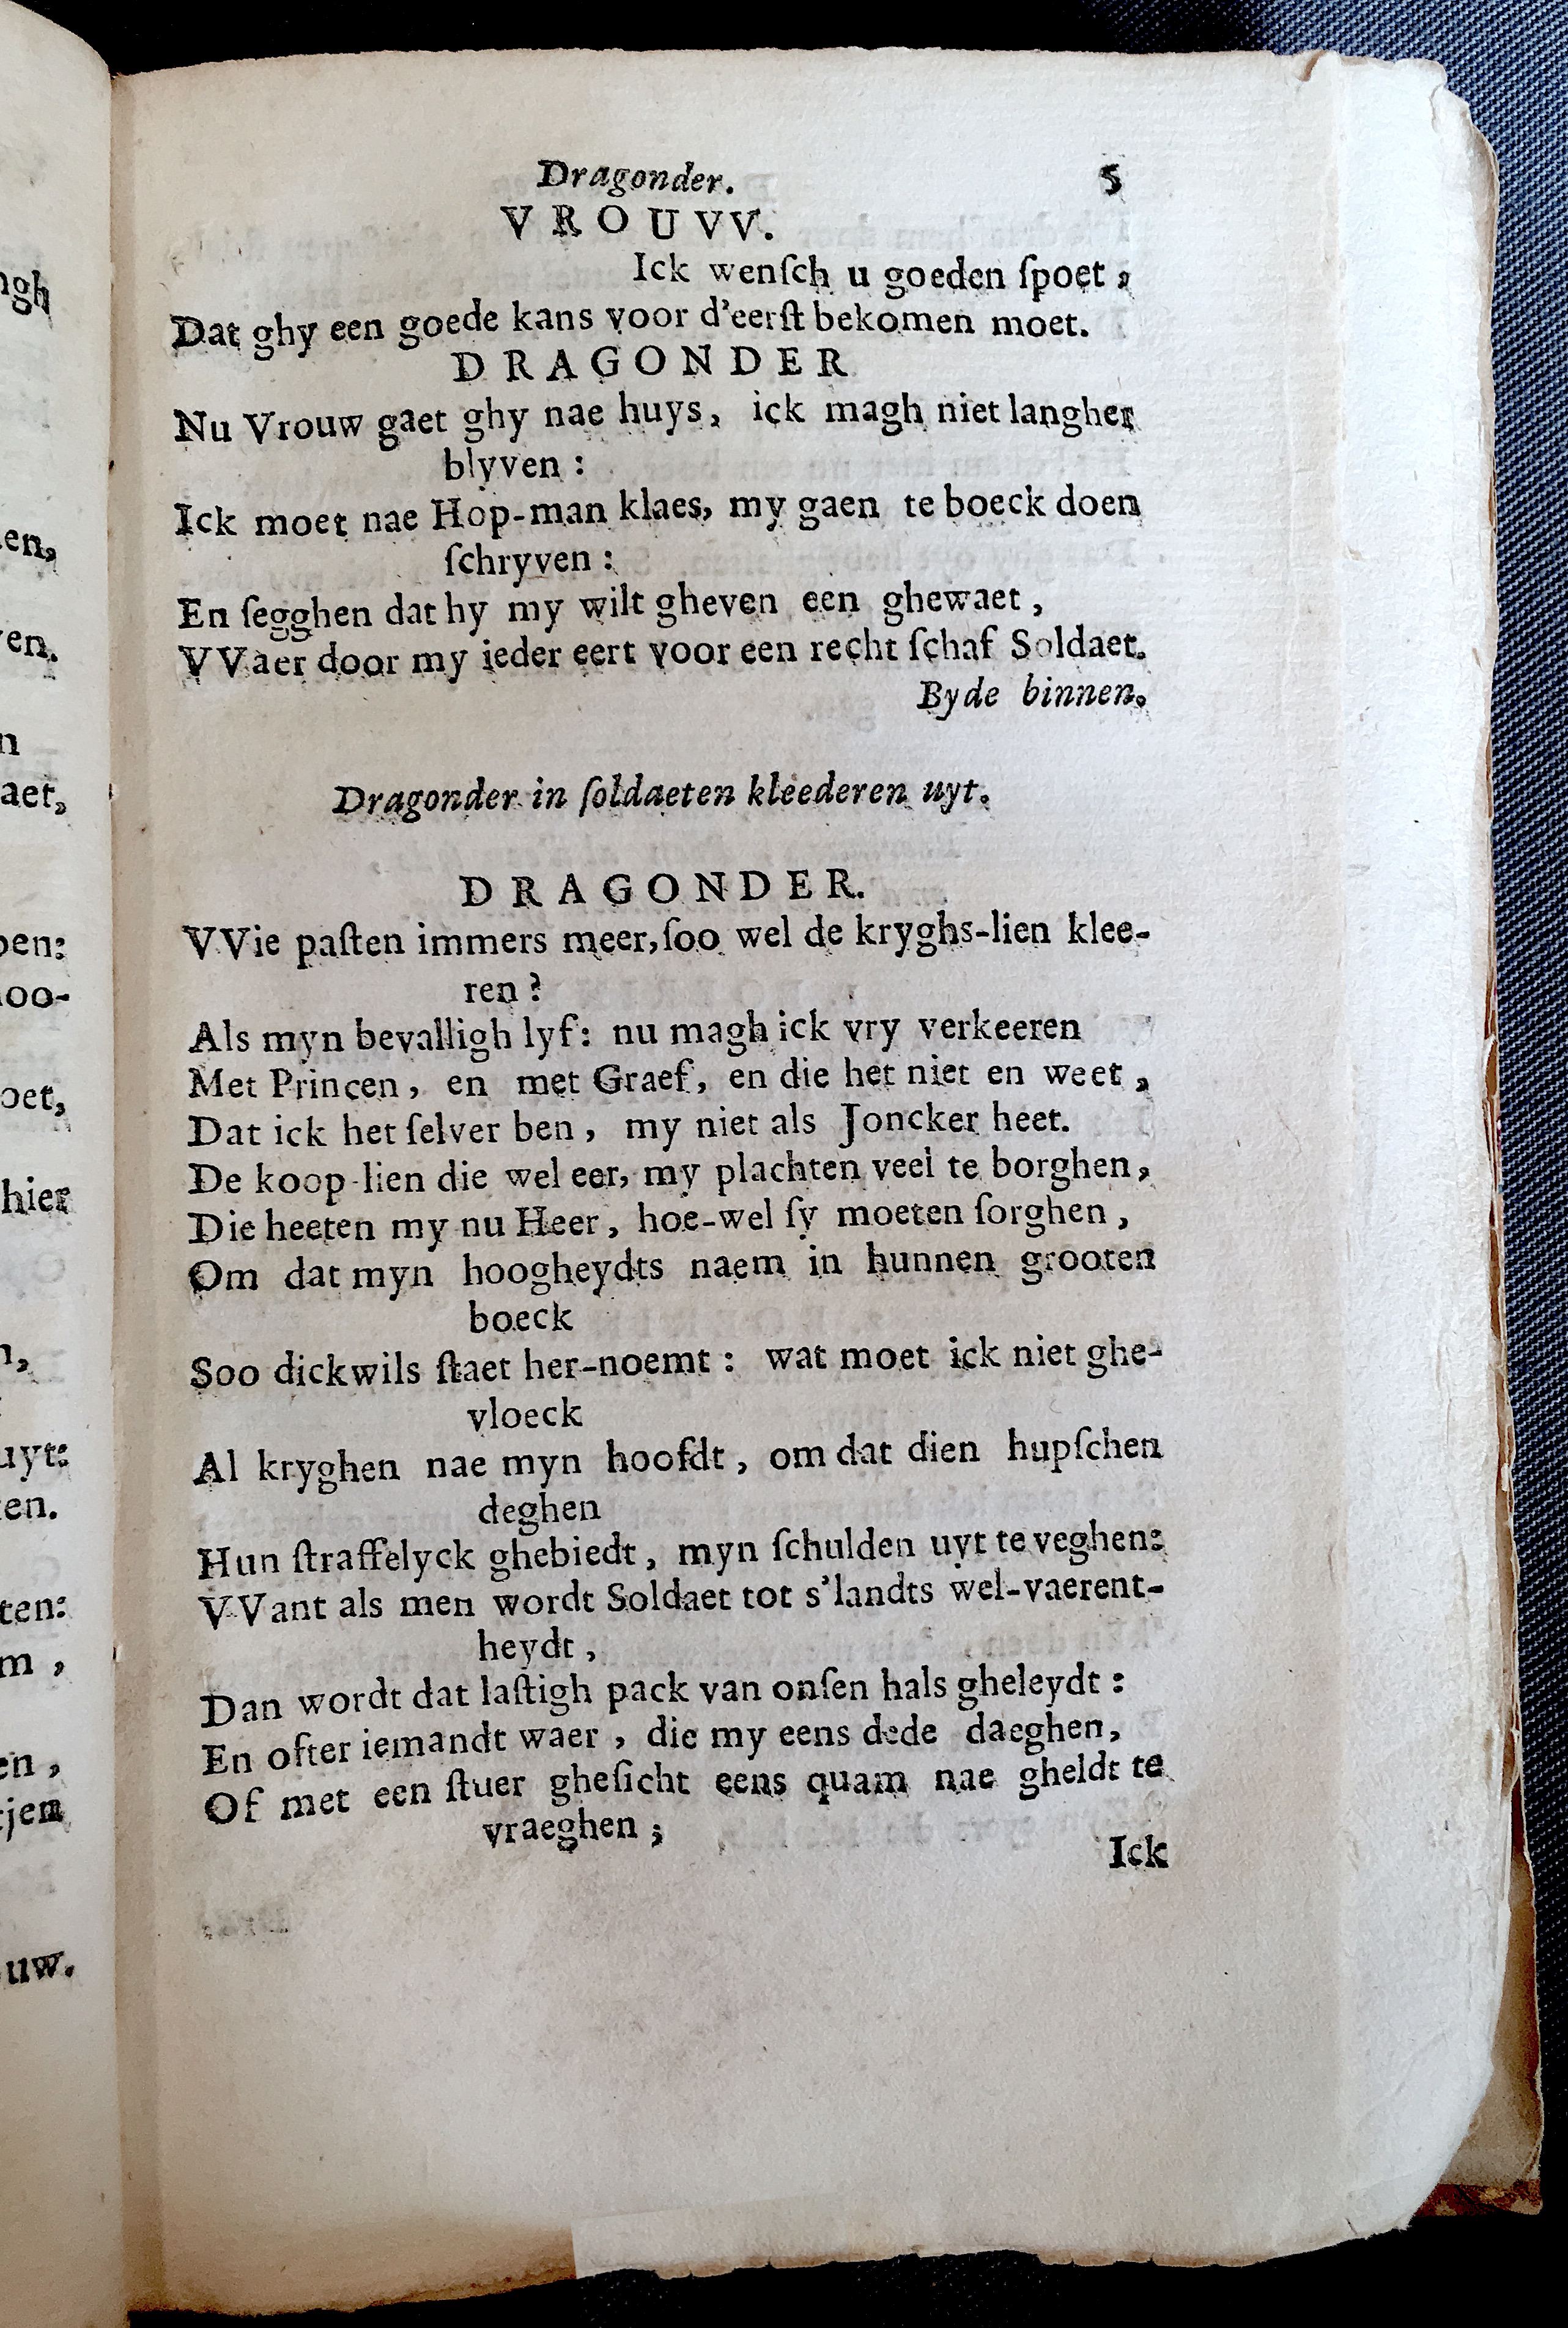 Dragonder. 5
VROUVV.
Ick wenſch u goeden ſpoet,
Dat ghy een goede kans voor d'eerſt bekomen moet.
DRAGONDER
Nu Vrouw gaet ghy nae huys, ick magh niet langher
blyven:
Ick moet nae Hop-man klaes, my gaen te boeck doen
ſchryven:
En ſegghen dat hy my wilt gheven een ghewaet,
VVaer door my ieder eert voor een recht ſchaf Soldaet.
Byde binnen.
Dragonder in ſoldaeten kleederen uyt.
DRAGONDER.
VVie paſten immers meer, ſoo wel de kryghs-lien klee-
ren?
Als myn bevalligh lyf: nu magh ick vry verkeeren
Met Princen, en met Graef, en die het niet en weet,
Dat ick het ſelver ben, my niet als Joncker heet.
De koop-lien die wel eer, my plachten veel te borghen,
Die heeten my nu Heer, hoe-wel ſy moeten ſorghen,
Om dat myn hoogheydts naem in hunnen grooten
boeck
Soo dickwils ſtaet her-noemt: wat moet ick niet ghe-
vloeck
Al kryghen nae myn hoofdt, om dat dien hupſchen
deghen
Hun ſtraffelyck ghebiedt, myn ſchulden uyt te veghen:
VVant als men wordt Soldaet tot s'landts wel-vaerent-
heydt,
Dan wordt dat laſtigh pack van onſen hals gheleydt:
En ofter iemandt waer, die my eens dede daeghen,
Of met een ſtuer gheſicht eens quam nae gheldt te
vraeghen;
Ick